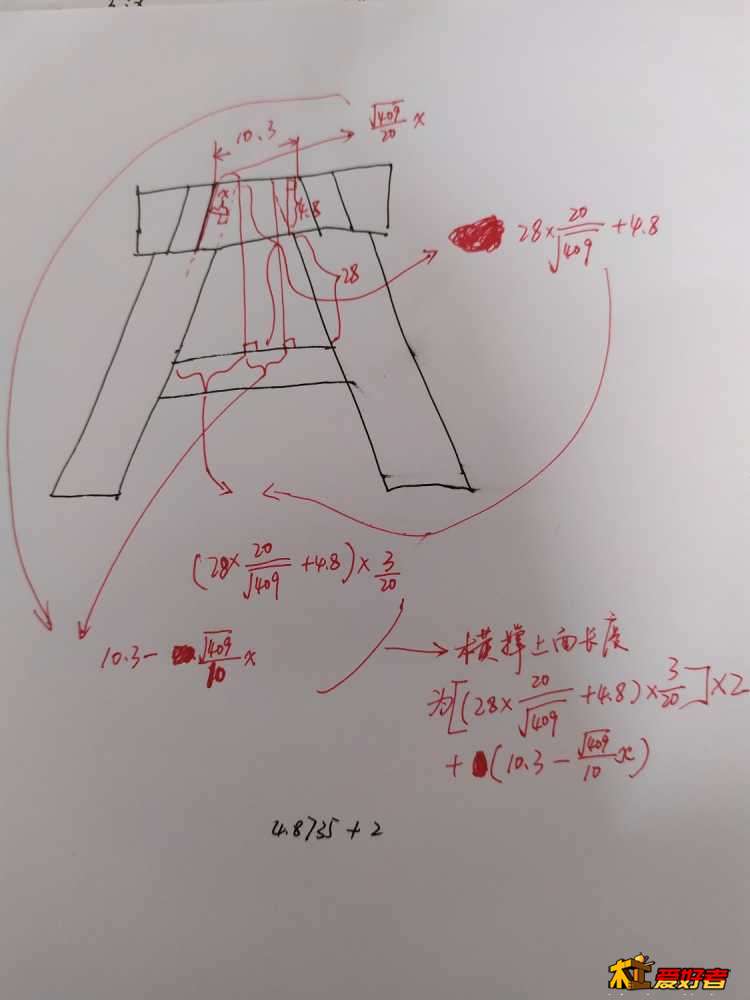 10.3
√409/20 x
x
4.8
28
28×20/√409+4.8
(28×20/√409+4.8)×3/20
10.3-√409/10 x
横撑上面长度
为[(28×20/√409+4.8)×3/20]×2
+(10.3-√409/10 x)
4.8735+2
木工爱好者